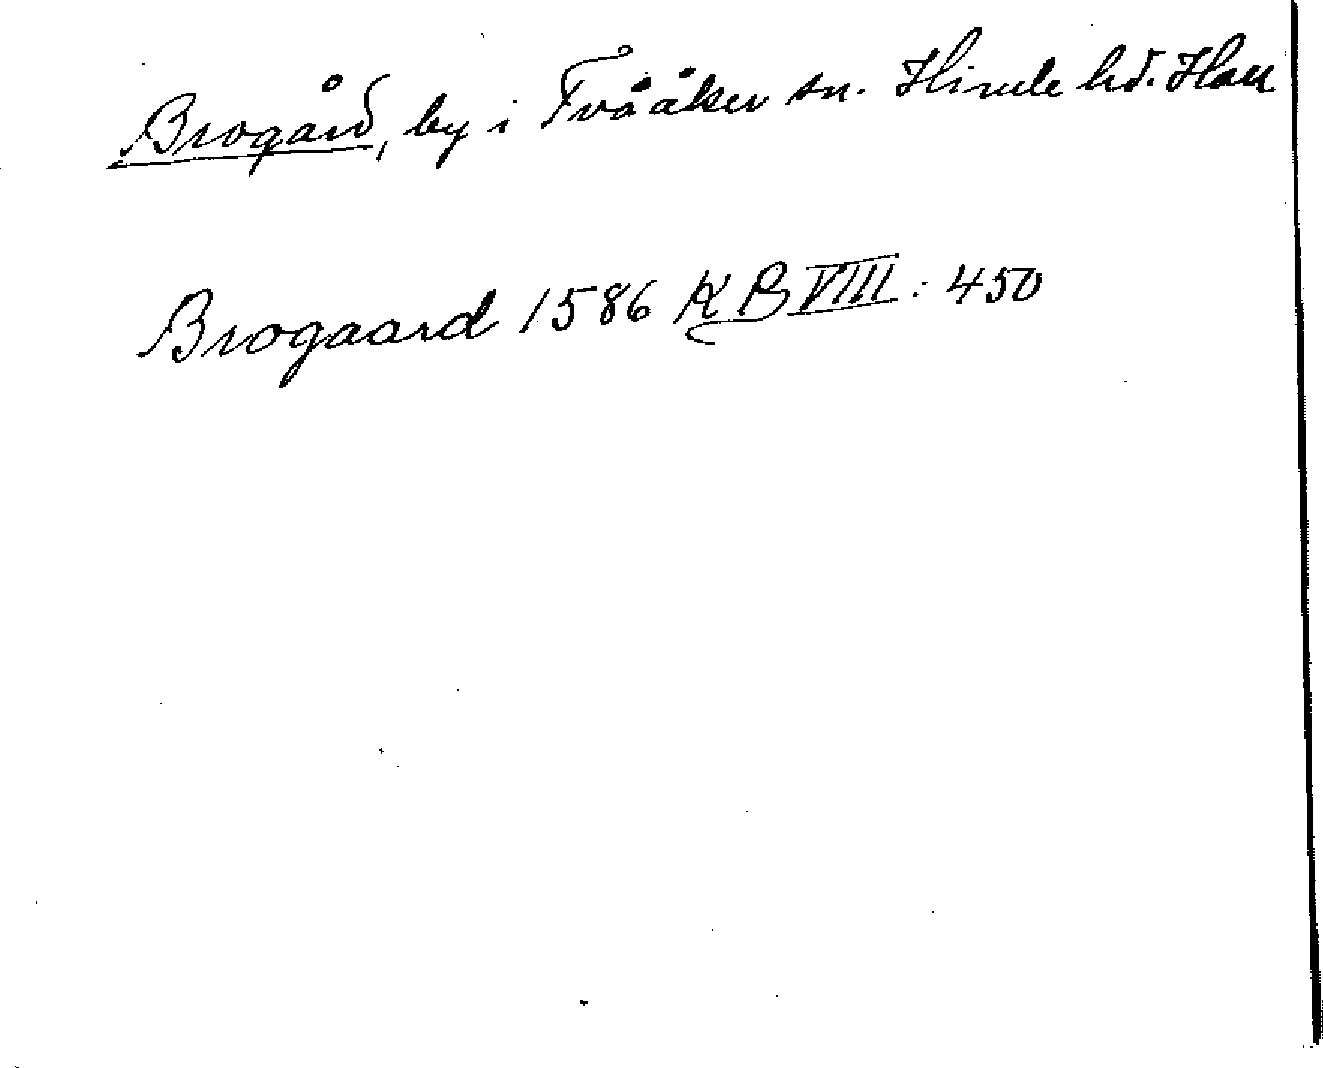 Brogård, by i Tvååker sn. Himle hd. Hall
Brogaard 1586 KB VIII: 450